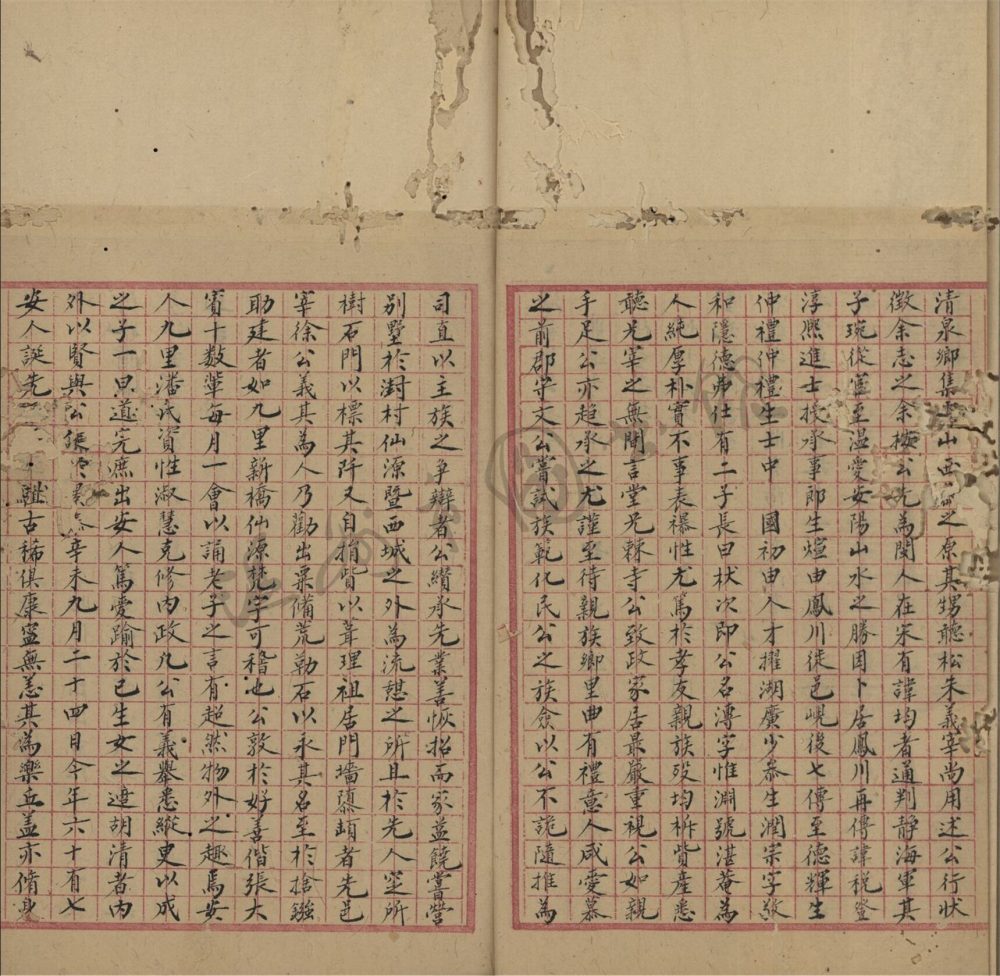 清泉鄉集山西之原其甥聽松朱義宰尚用述公行狀
徵余志之余按公先為閩人在宋有諱均者通判靜海軍其
子琬從宦至溫愛安陽山水之勝因卜居鳳川再傳諱稅登
淳熙進士授承事郎生煊由鳳川徙邑峴後七傳至德輝生
仲禮仲禮生士中國初由人才擢湖廣少參生潤宗字敬
和隱德弗仕有二子長曰栻次即公名漙字惟淵號湛菴為
人純厚朴實不事表襮性尤篤於孝友親族歿均析貲產悉
聽兄宰之無閒言堂兄棘寺公致政家居最嚴重視公如親
手足公亦趨承之尤謹至待親族鄉里曲有禮意人咸愛慕
之前郡守文公嘗試族範化民公之族僉以公不詭隨推為
司直以主族之爭辯者公纘承先業善恢拓而家益饒嘗營
別墅於澍村仙源暨西城之外為流憩之所且於先人窀所
樹石門以標其阡又自捐貲以葺理祖居門墻隳頔者先邑
宰徐公義其為人乃勸出粟備荒勒石以永其名至於捨鏹
助建者如九里新橋仙源梵宇可稽也公敦於好善偕張大
賓十數輩每月一會以誦老子之言有超然物外之趣焉安
人九里潘氏資性淑慧克修內政凡公有義舉悉縱臾以成
之子一思道完庶出安人篤愛踰於已生女之適胡清者內
外以賢與公辛未九月二十四日今年六十有七
安人誕先躋古稀俱康寧無恙其為樂丘蓋亦脩身